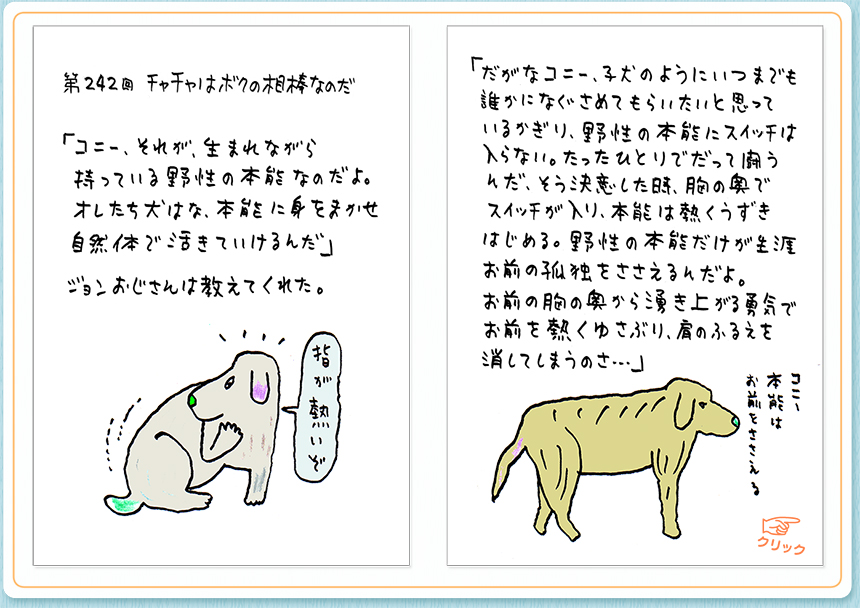 第242回 チャチャはボクの相棒なのだ
「コニー、それが、生まれながら
持っている野性の本能なのだよ。
オレたち犬はな、本能に身をまかせ
自然体で活きていけるんだ」
ジョンおじさんは教えてくれた。
指が熱いぞ
「だがなコニー、子犬のようにいつまでも
誰かになぐさめてもらいたいと思って
いるかぎり、野性の本能にスイッチは
入らない。たったひとりでだって闘う
んだ、そう決意した時、胸の奥で
スイッチが入り、本能は熱くうずき
はじめる。野性の本能だけが生涯
お前の孤独をささえるんだよ。
お前の胸の奥から湧き上がる勇気で
お前を熱くゆさぶり、肩のふるえを
消してしまうのさ…」
コニー
本能は
お前をささえる
クリック